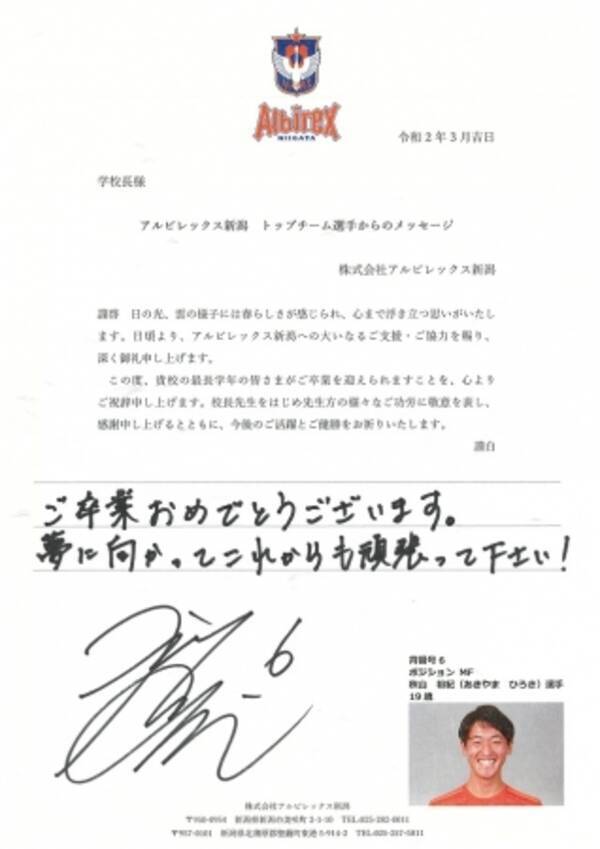 Albirex
NIIGATA
令和2年3月吉日
学校長様
アルビレックス新潟 トップチーム選手からのメッセージ
株式会社アルビレックス新潟
謹啓 日の光、雲の様子には春らしさが感じられ、心まで浮き立つ思いがいたし
ます。日頃より、アルビレックス新潟への大いなるご支援・ご協力を賜り、
深く御礼申し上げます。
この度、貴校の最長学年の皆さまがご卒業を迎えられますことを、心より
ご祝辞申し上げます。校長先生をはじめ先生方の様々なご功労に敬意を表し、
感謝申し上げるとともに、今後のご活躍とご健勝をお祈りいたします。
謹白
ご卒業おめでとうございます。
夢に向かってこれからも頑張って下さい!
6
背番号6
ポジション MF
秋山 裕紀(あきやま ひろき)選手
19歳
株式会社アルビレックス新潟
〒950-0954 新潟県新潟市 2-3-10 TEL:025-282-0011
〒957-0101 新潟県北蒲原郡聖籠町東港5-914-2 TEL:025-257-5011